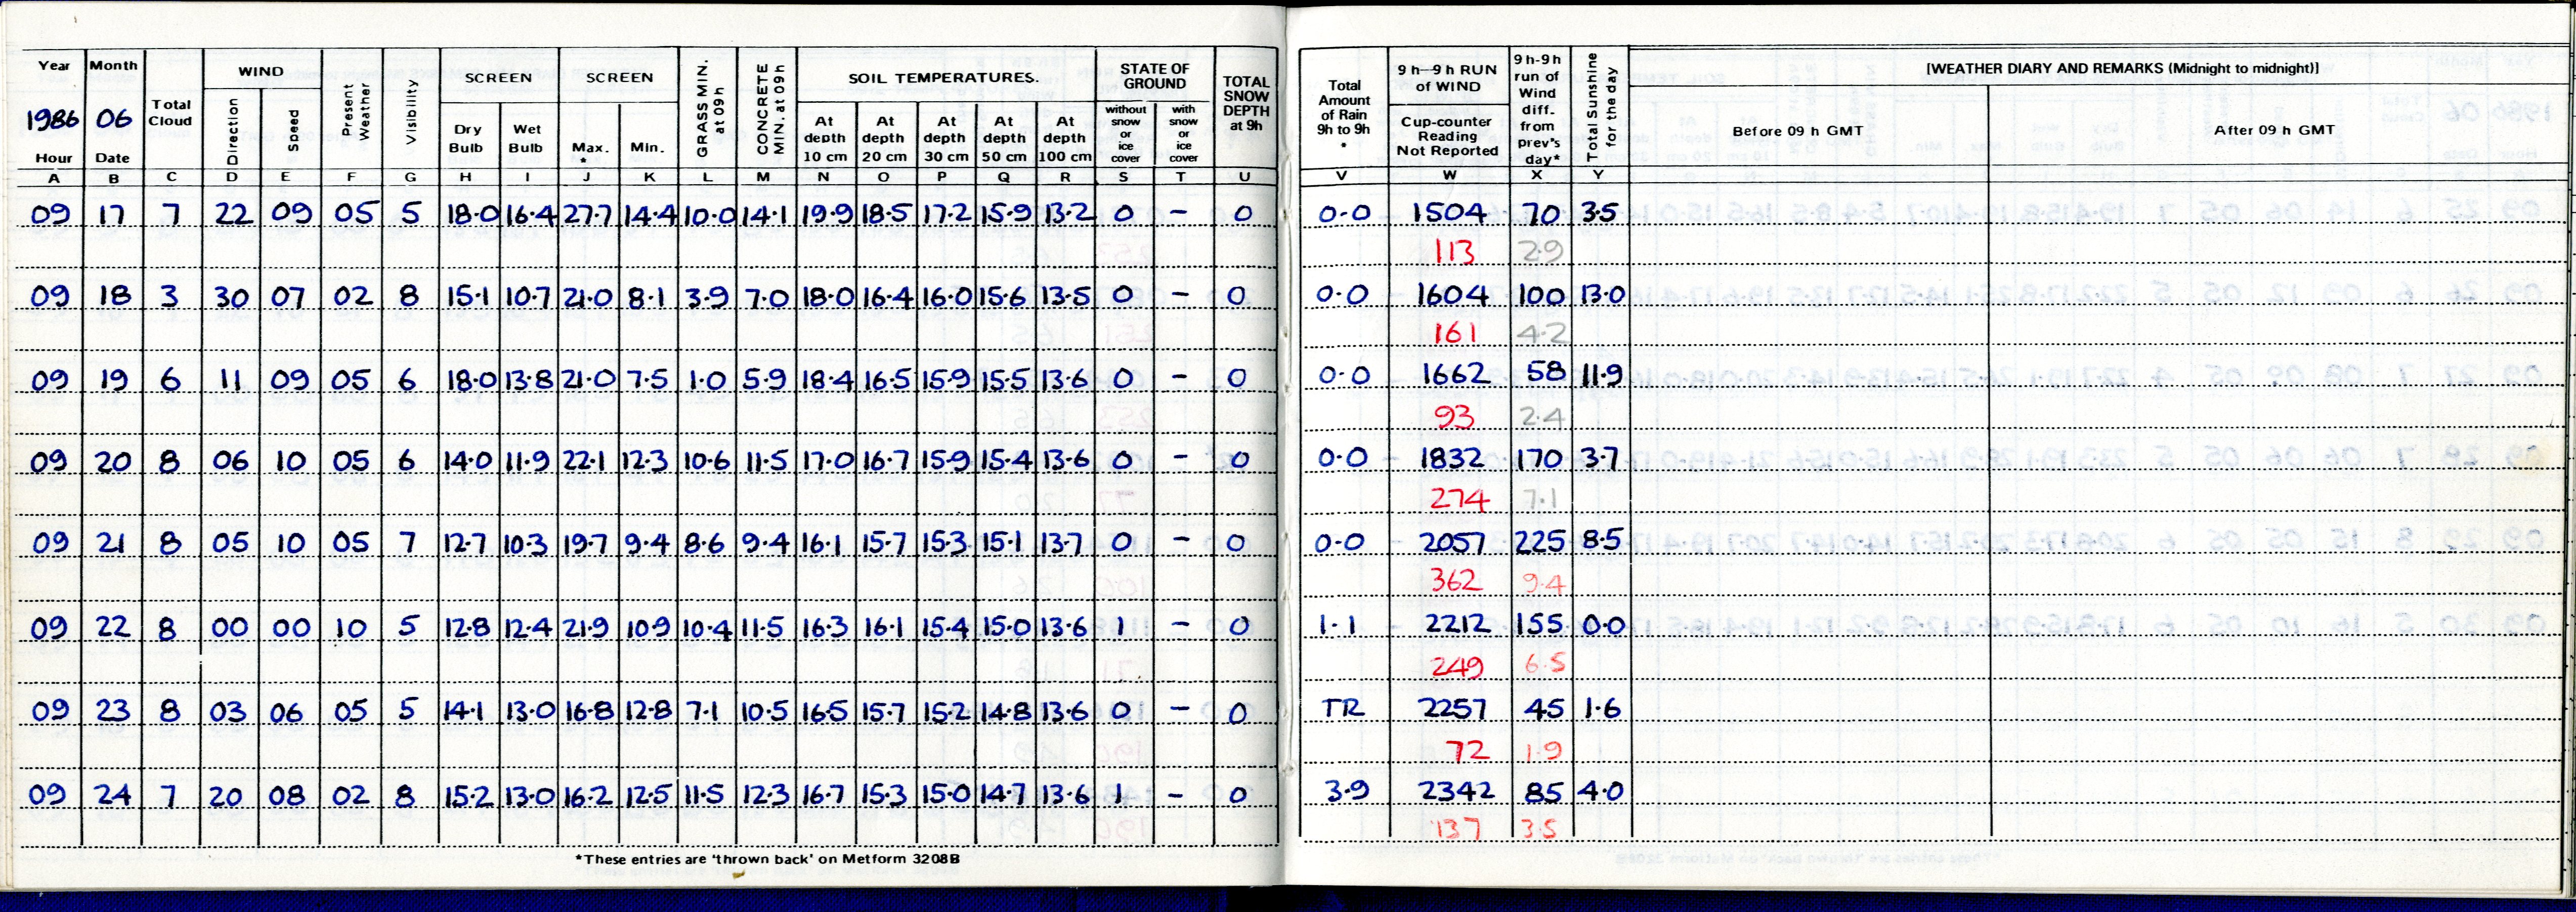 Year Month Total Cloud WIND Present Weather Visibility SCREEN SCREEN GRASS MIN. at 09h CONCRETE MIN. at 09h SOIL TEMPERATURES. STATE OF GROUND TOTAL SNOW DEPTH at 9h Total Amount of Rain 9h to 9h * 9h—9h RUN of WIND 9h-9h run of Wind diff. from prev's day* Total Sunshine for the day [WEATHER DIARY AND REMARKS (Midnight to midnight)]
1986 06 Direction Speed Dry Bulb Wet Bulb Max. * Min. At depth 10 cm At depth 20 cm At depth 30 cm At depth 50 cm At depth 100 cm without snow or ice cover with snow or ice cover Cup-counter Reading Not Reported Before 09 h GMT After 09 h GMT
Hour Date
A B C D E F G H I J K L M N O P Q R S T U V W X Y
09 17 7 22 09 05 5 18.0 16.4 27.7 14.4 10.0 14.1 19.9 18.5 17.2 15.9 13.2 0 – 0 0.0 1504 70 3.5
113 2.9
09 18 3 30 07 02 8 15.1 10.7 21.0 8.1 3.9 7.0 18.0 16.4 16.0 15.6 13.5 0 – 0 0.0 1604 100 13.0
161 4.2
09 19 6 11 09 05 6 18.0 13.8 21.0 7.5 1.0 5.9 18.4 16.5 15.9 15.5 13.6 0 – 0 0.0 1662 58 11.9
93 2.4
09 20 8 06 10 05 6 14.0 11.9 22.1 12.3 10.6 11.5 17.0 16.7 15.9 15.4 13.6 0 – 0 0.0 1832 170 3.7
274 7.1
09 21 8 05 10 05 7 12.7 10.3 19.7 9.4 8.6 9.4 16.1 15.7 15.3 15.1 13.7 0 – 0 0.0 2057 225 8.5
362 9.4
09 22 8 00 00 10 5 12.8 12.4 21.9 10.9 10.4 11.5 16.3 16.1 15.4 15.0 13.6 1 – 0 1.1 2212 155 0.0
249 6.5
09 23 8 03 06 05 5 14.1 13.0 16.8 12.8 7.1 10.5 16.5 15.7 15.2 14.8 13.6 0 – 0 TR 2257 45 1.6
72 1.9
09 24 7 20 08 02 8 15.2 13.0 16.2 12.5 11.5 12.3 16.7 15.3 15.0 14.7 13.6 1 – 0 3.9 2342 85 4.0
137 3.5
*These entries are 'thrown back' on Metform 3208B